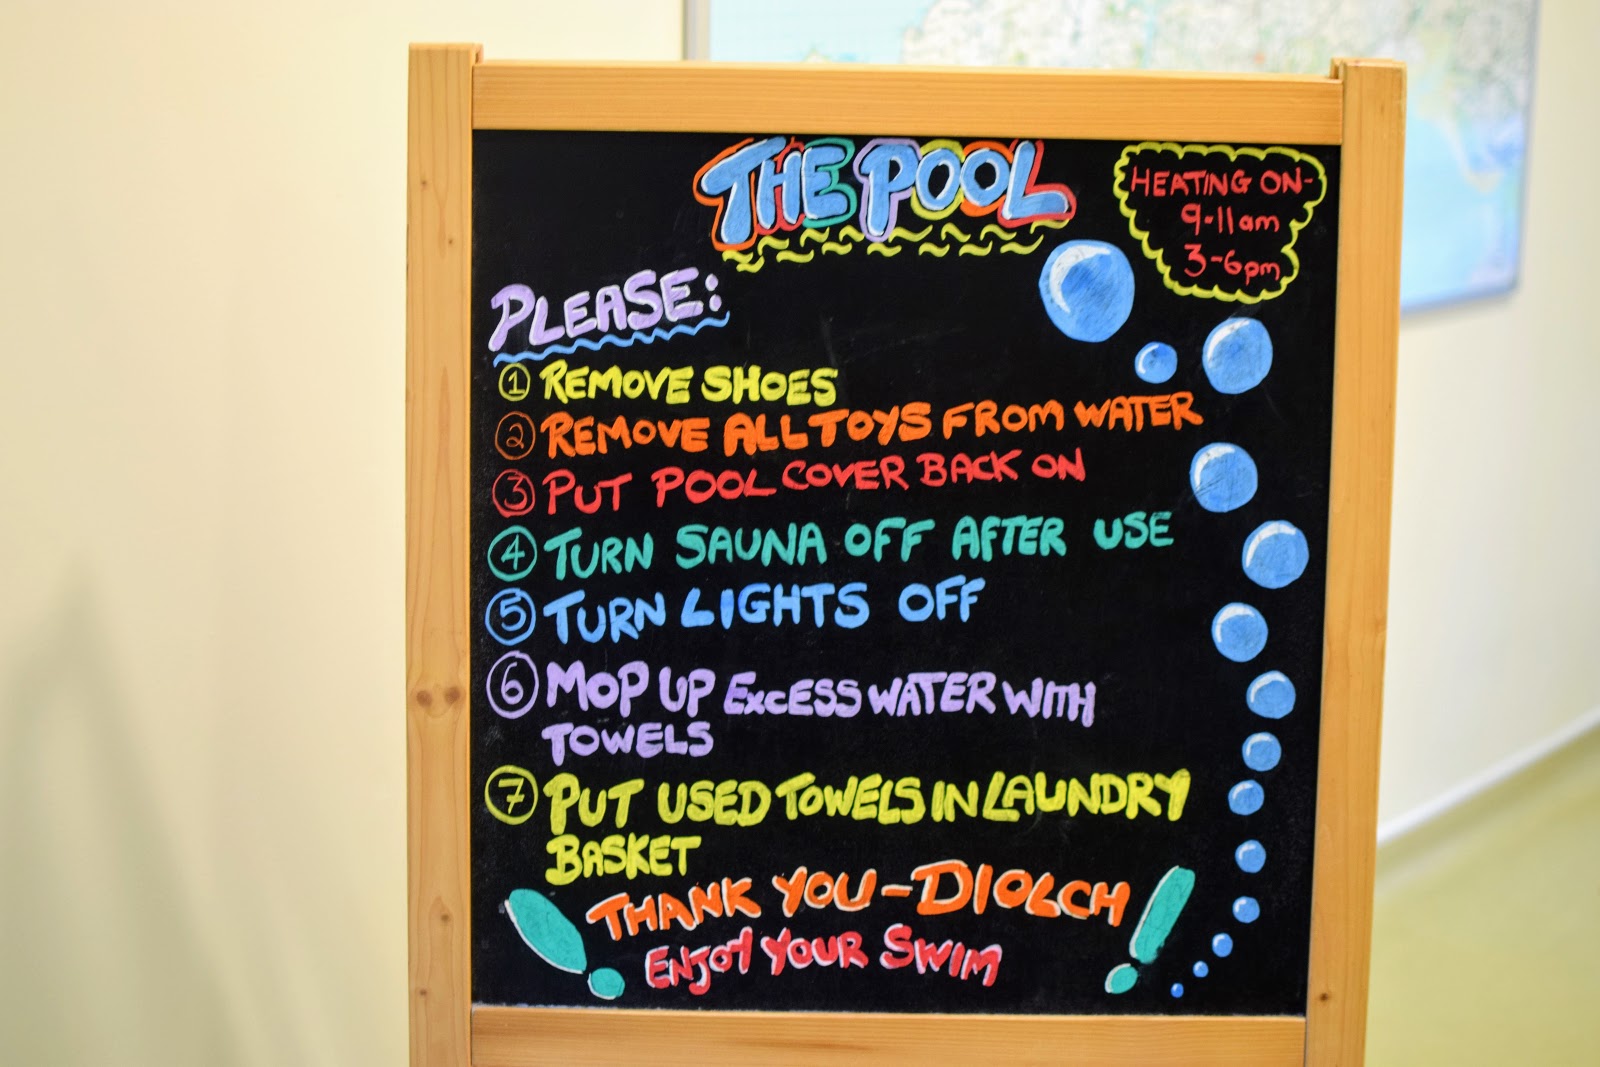 THE POOL
HEATING ON-
9-11am
3-6pm
PLEASE:
1 REMOVE SHOES
2 REMOVE ALL TOYS FROM WATER
3 PUT POOL COVER BACK ON
4 TURN SAUNA OFF AFTER USE
5 TURN LIGHTS OFF
6 MOP UP EXCESS WATER WITH
TOWELS
7 PUT USED TOWELS IN LAUNDRY
BASKET
! THANK YOU - DIOLCH !
ENJOY YOUR SWIM